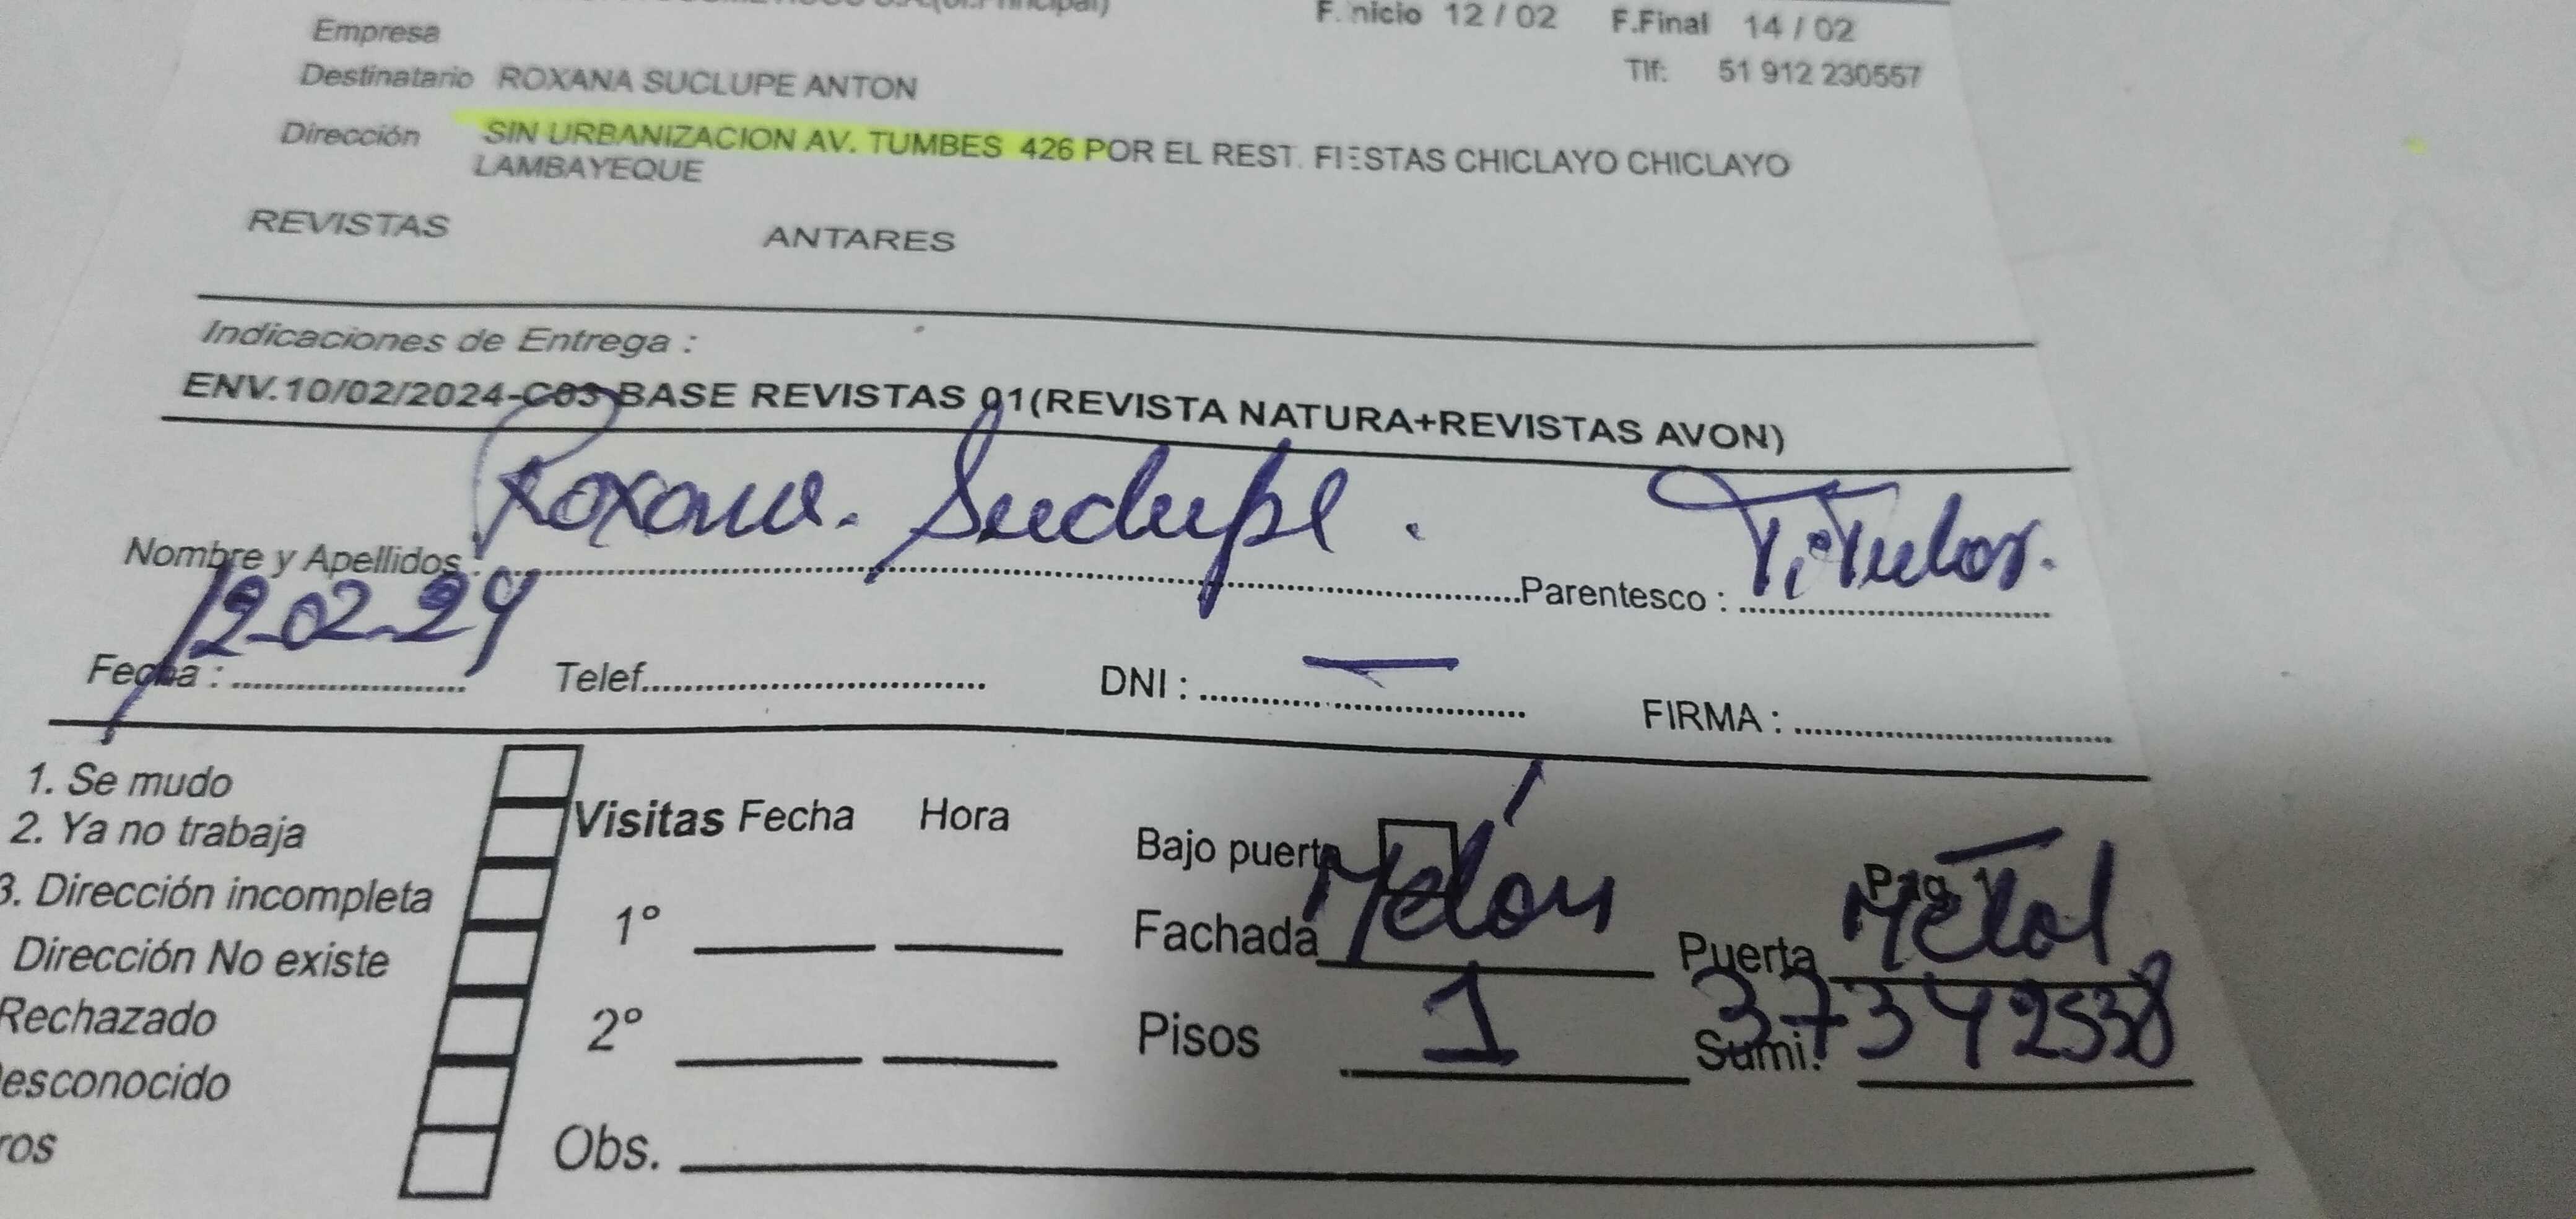 Empresa
F.Inicio 12 / 02 F.Final 14 / 02
Destinatario ROXANA SUCLUPE ANTON Tlf: 51 912 230557
Dirección SIN URBANIZACION AV. TUMBES 426 POR EL REST. FIESTAS CHICLAYO CHICLAYO
LAMBAYEQUE
REVISTAS ANTARES
Indicaciones de Entrega :
ENV.10/02/2024-C03-BASE REVISTAS 01(REVISTA NATURA+REVISTAS AVON)
Nombre y Apellidos: Roxana. Suclupe. Parentesco : Titular.
Fecha : 12-02-24 Telef. DNI : — FIRMA :
1. Se mudo
2. Ya no trabaja
3. Dirección incompleta
Dirección No existe
Rechazado
esconocido
ros
Visitas Fecha Hora
1°
2°
Obs.
Bajo puerta Pag. 1
Fachada Melón Puerta Metal
Pisos 1 Sumi. 37342538